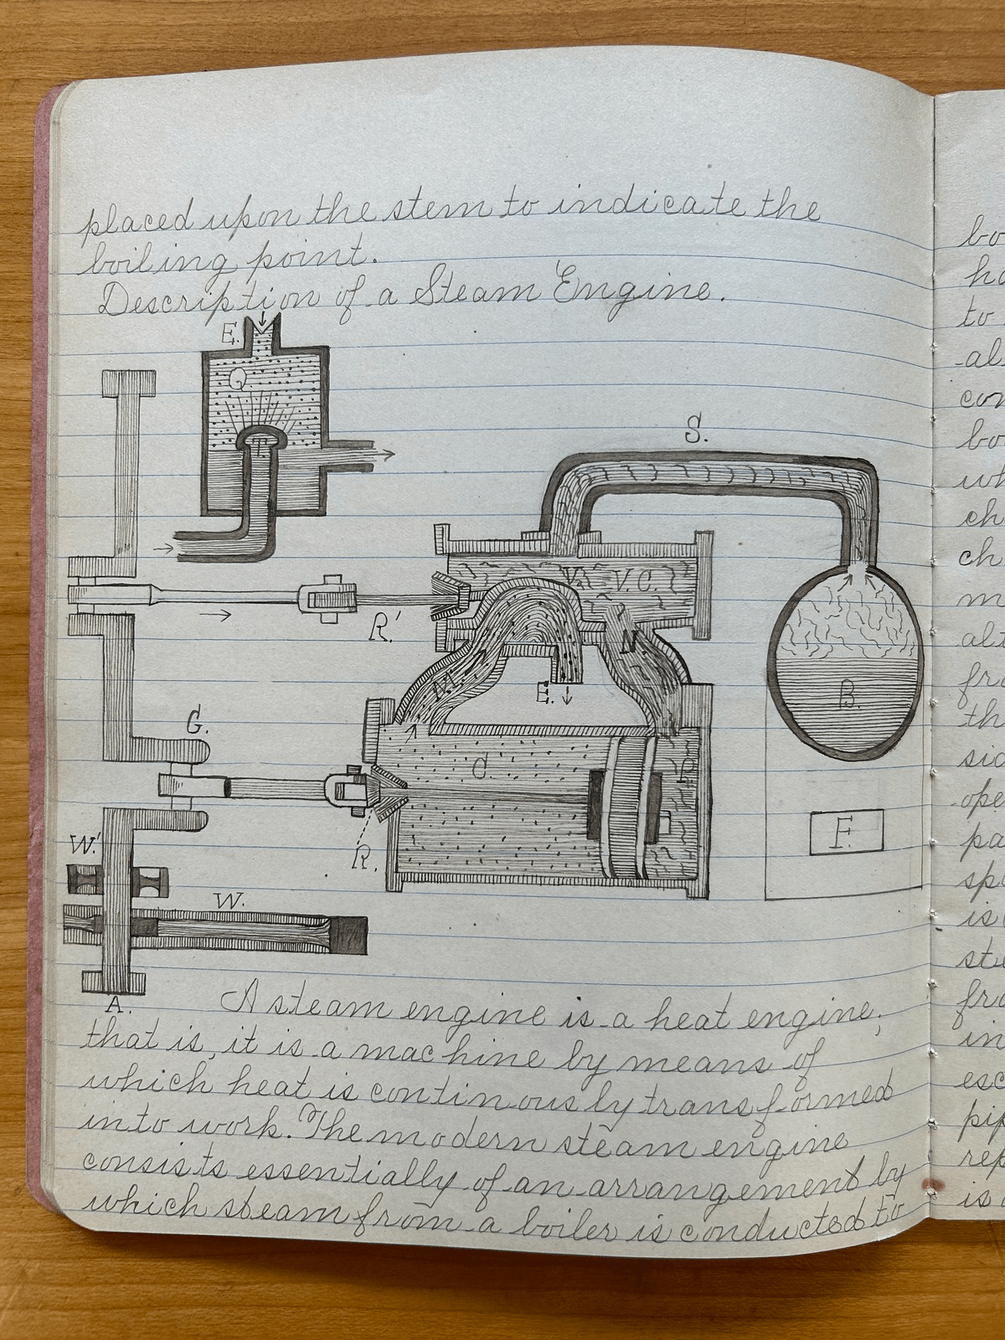 placed upon the stem to indicate the
boiling point.
Description of a Steam Engine.
E.
Q
S.
V.
V.C.
R'.
N
M
E.
B.
G.
C.
P
R.
F.
W'.
W.
A.
A steam engine is a heat engine;
that is, it is a machine by means of
which heat is continously transformed
into work. The modern steam engine
consists essentially of an arrangement by
which steam from a boiler is conducted to
bo
ha
to
al
con
bo
wh
ch
ch
m
als
fro
th
sid
ope
pa
spa
is
ste
fri
in
esc
pip
rep
is